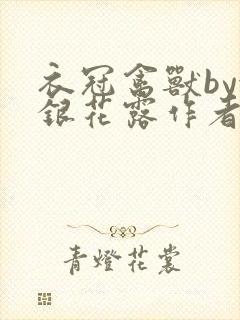 衣冠禽獸by
銀花露作者
青燈花裳